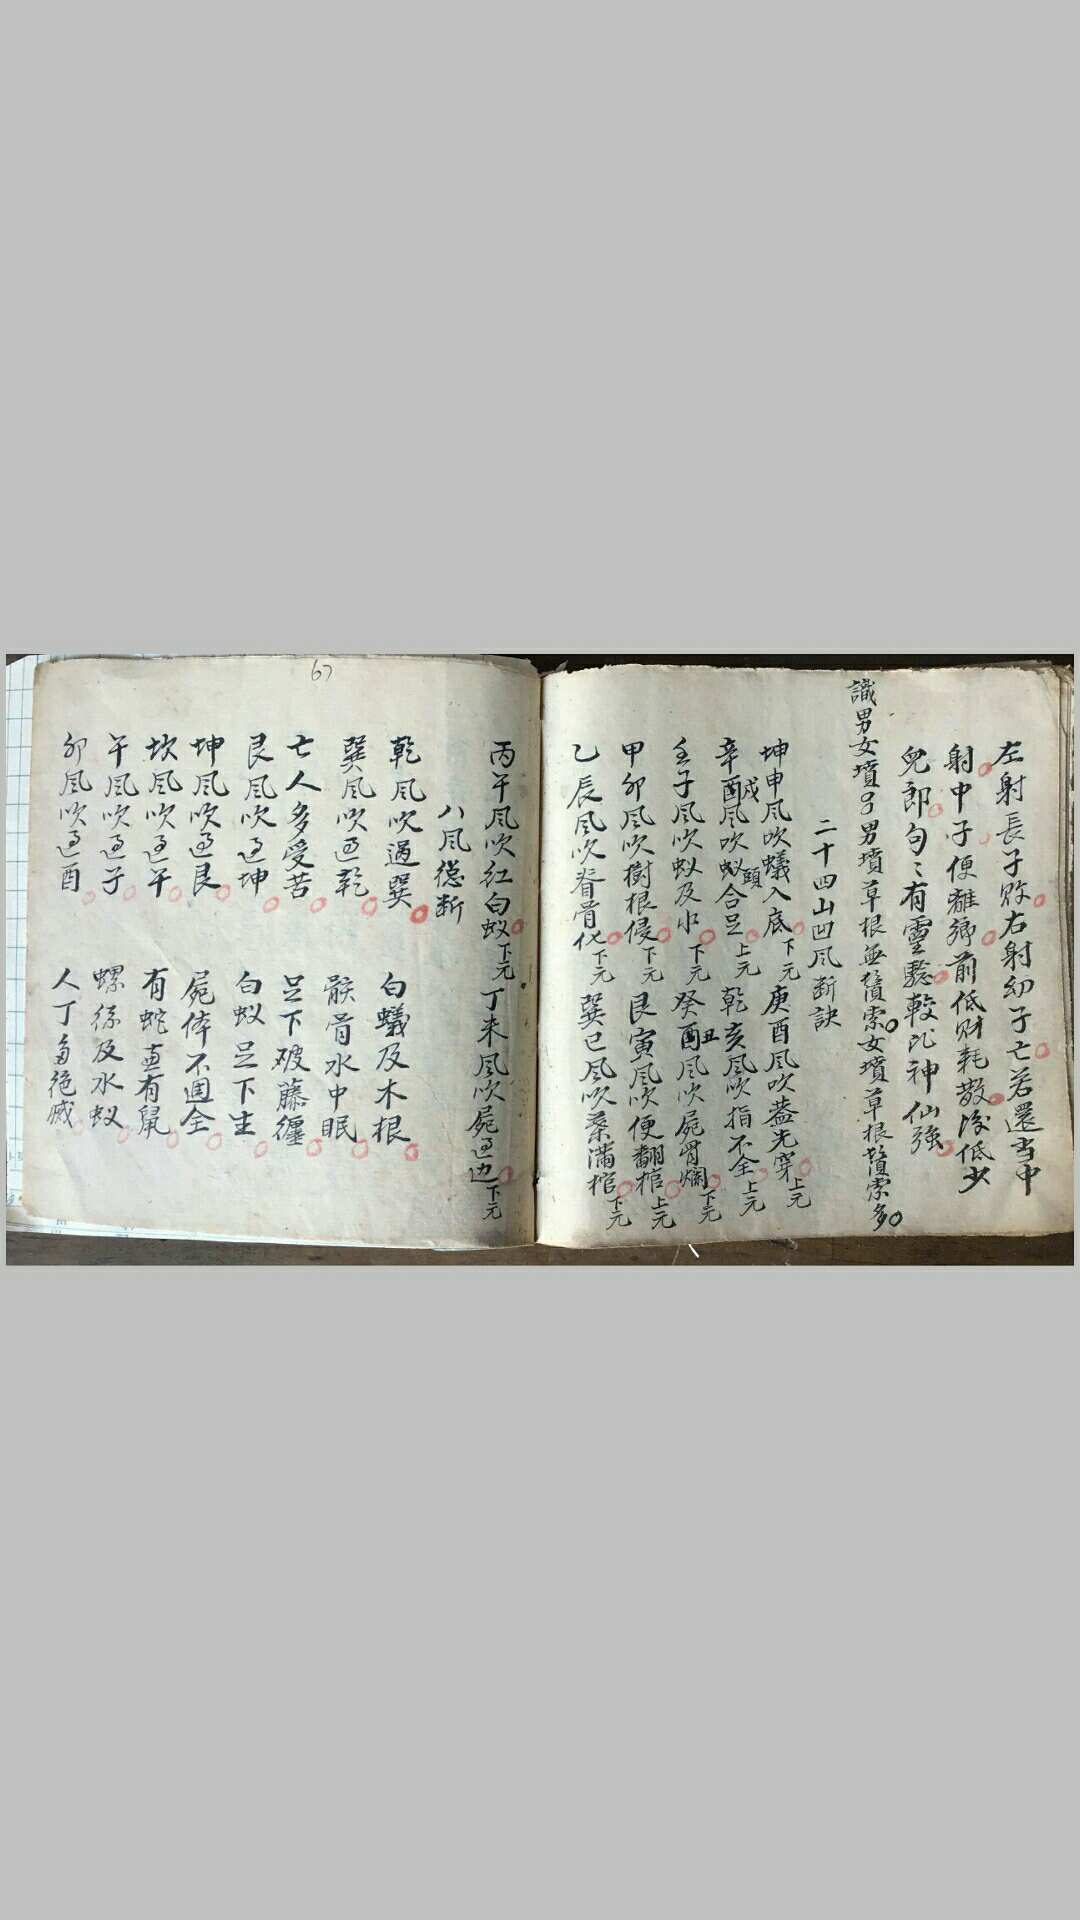 左射長子敗右射幻子亡若還当中
射中子便離鄉前低财耗散後低少
兒郎句〻有靈驗較比神仙強
識男女墳
男墳草根無鬚索女墳草根鬚索多
二十四山凹风断訣
坤申风吹蟻入底下元庚酉风吹蓋先穿上元
辛戌风吹蚁合頭足上元乾亥风吹指不全上元
壬子风吹蚁及水下元癸丑风吹屍骨爛下元
甲卯风吹樹根侵下元艮寅风吹便翻棺上元
乙辰风吹脊骨化下元巽巳风吹泰滿棺下元
67
丙午风吹红白蚁下元丁未风吹屍过边下元
八风總断
乾风吹過巽 白蟻及木根
巽风吹过乾 骸骨水中眠
亡人多受苦 足下被藤纏
艮风吹过坤 白蚁足下生
坤风吹过艮 屍体不週全
坎风吹过午 有蛇直有鼠
午风吹过子 螺絲及水蚁
卯风吹过酉 人丁多绝滅